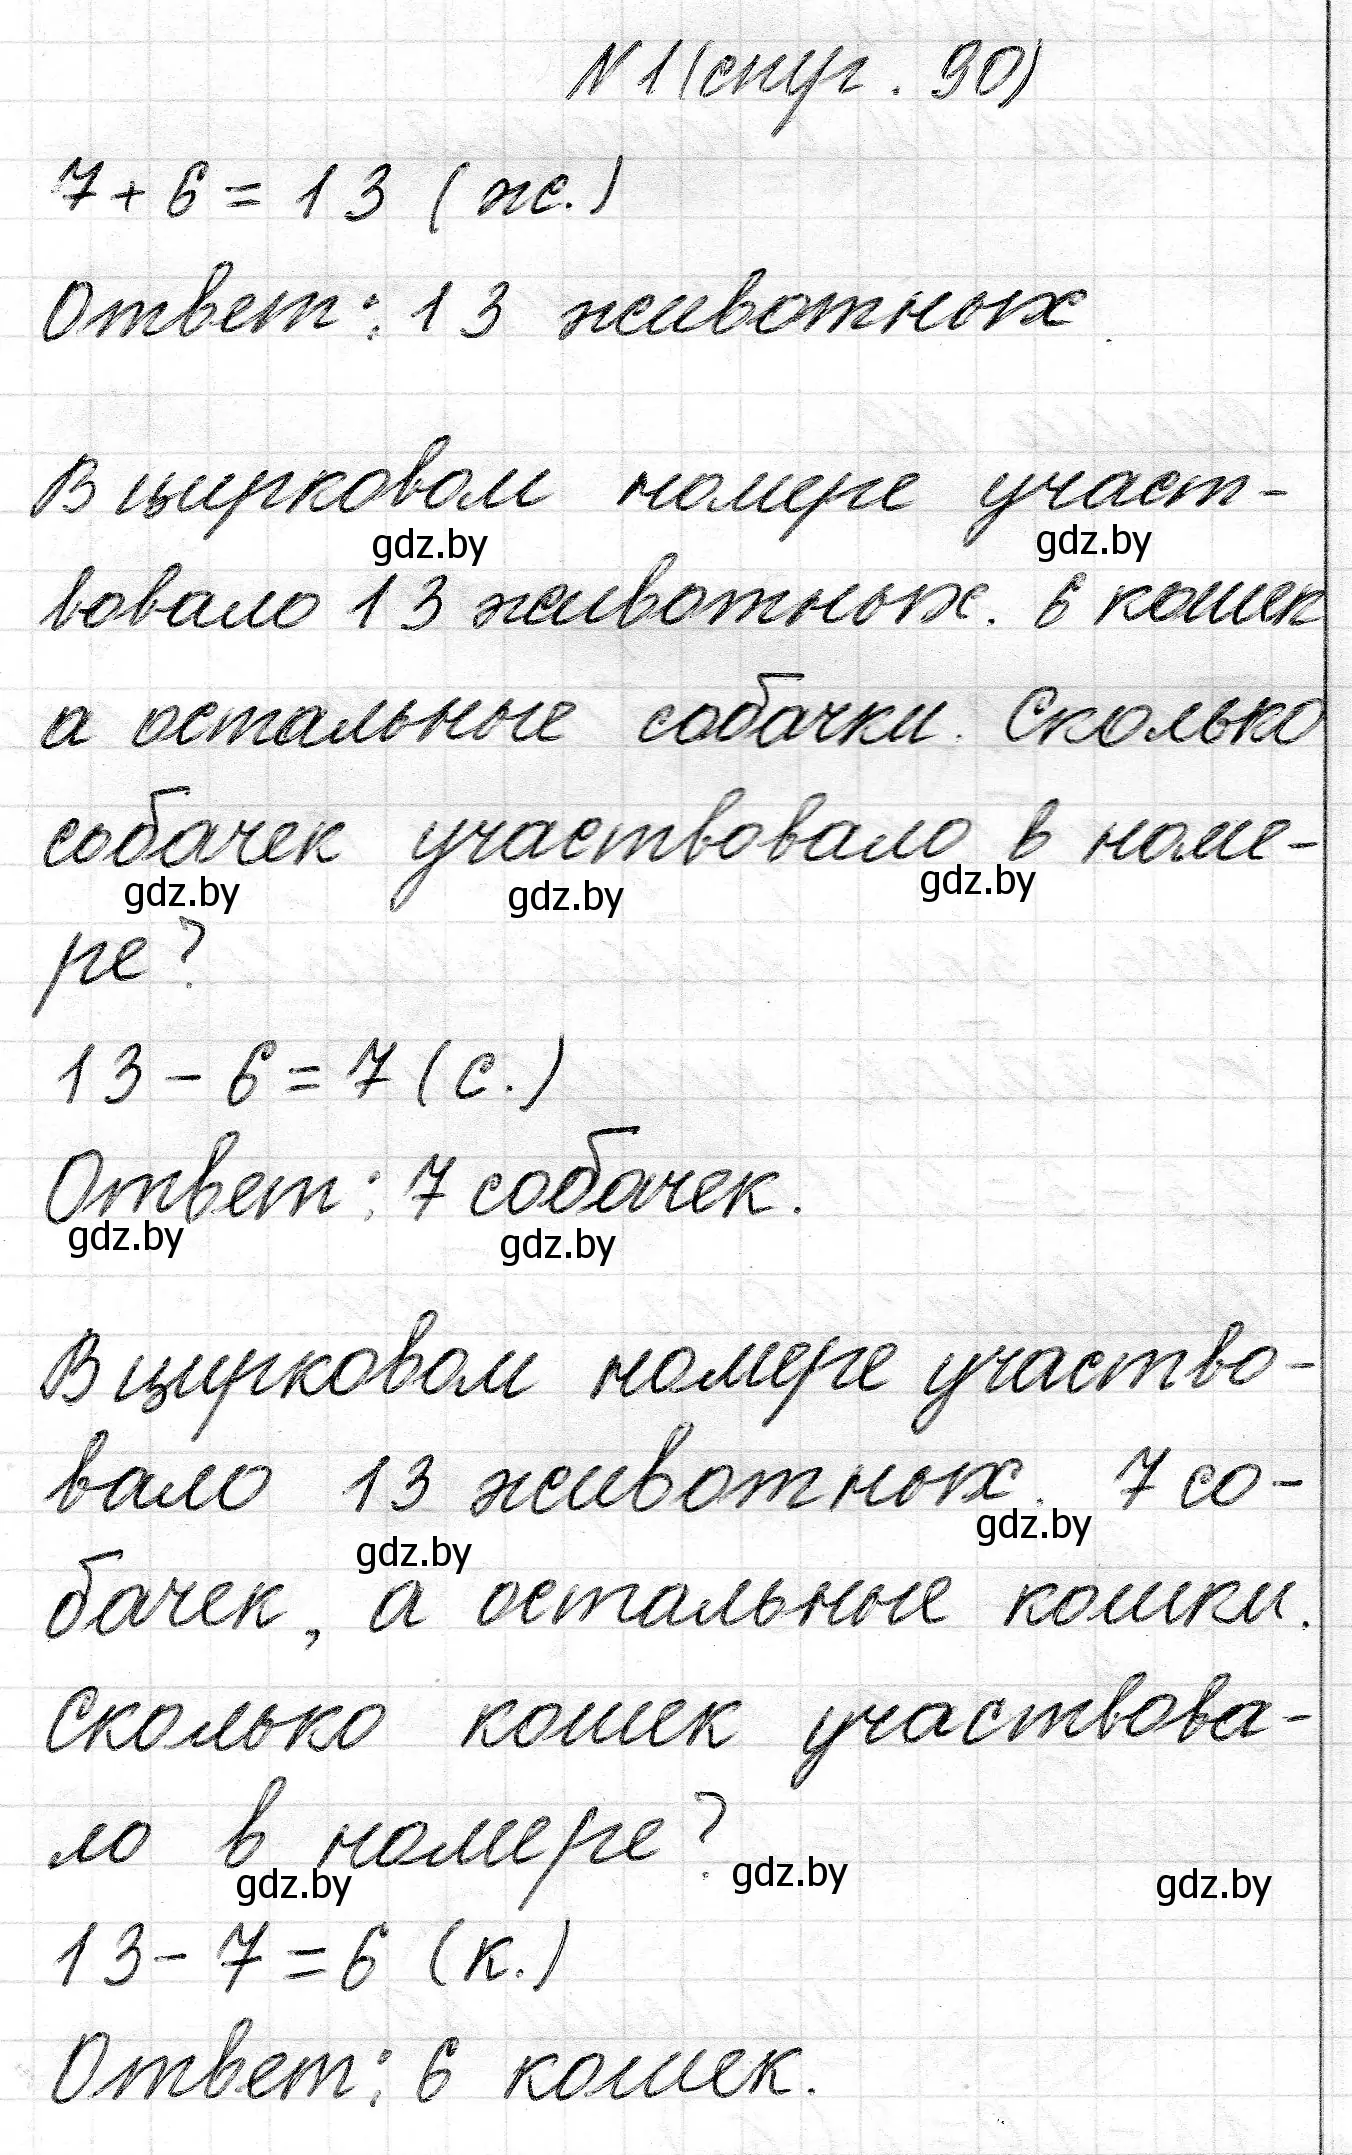 N 1 (стр. 90)
7 + 6 = 13 (ж.)
Ответ: 13 животных.
В цирковом номере участ-
gdz.by gdz.by
вовало 13 животных. 6 кошек
а остальные собачки. Сколько
собачек участвовало в номе-
gdz.by gdz.by gdz.by
ре?
13 - 6 = 7 (с.)
Ответ: 7 собачек.
gdz.by gdz.by
В цирковом номере участво-
вало 13 животных. 7 со-
gdz.by gdz.by
бачек, а остальные кошки.
Сколько кошек участвова-
ло в номере?
gdz.by gdz.by gdz.by
13 - 7 = 6 (к.)
Ответ: 6 кошек.